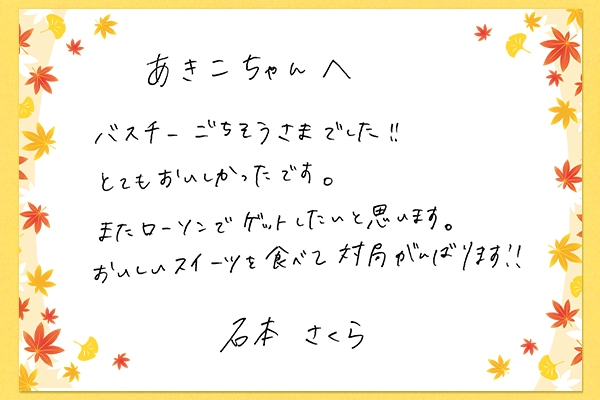 あきこちゃんへ
バスチー ごちそうさまでした!!
とてもおいしかったです。
またローソンでゲットしたいと思います。
おいしいスイーツを食べて対局がんばります!!
石本 さくら